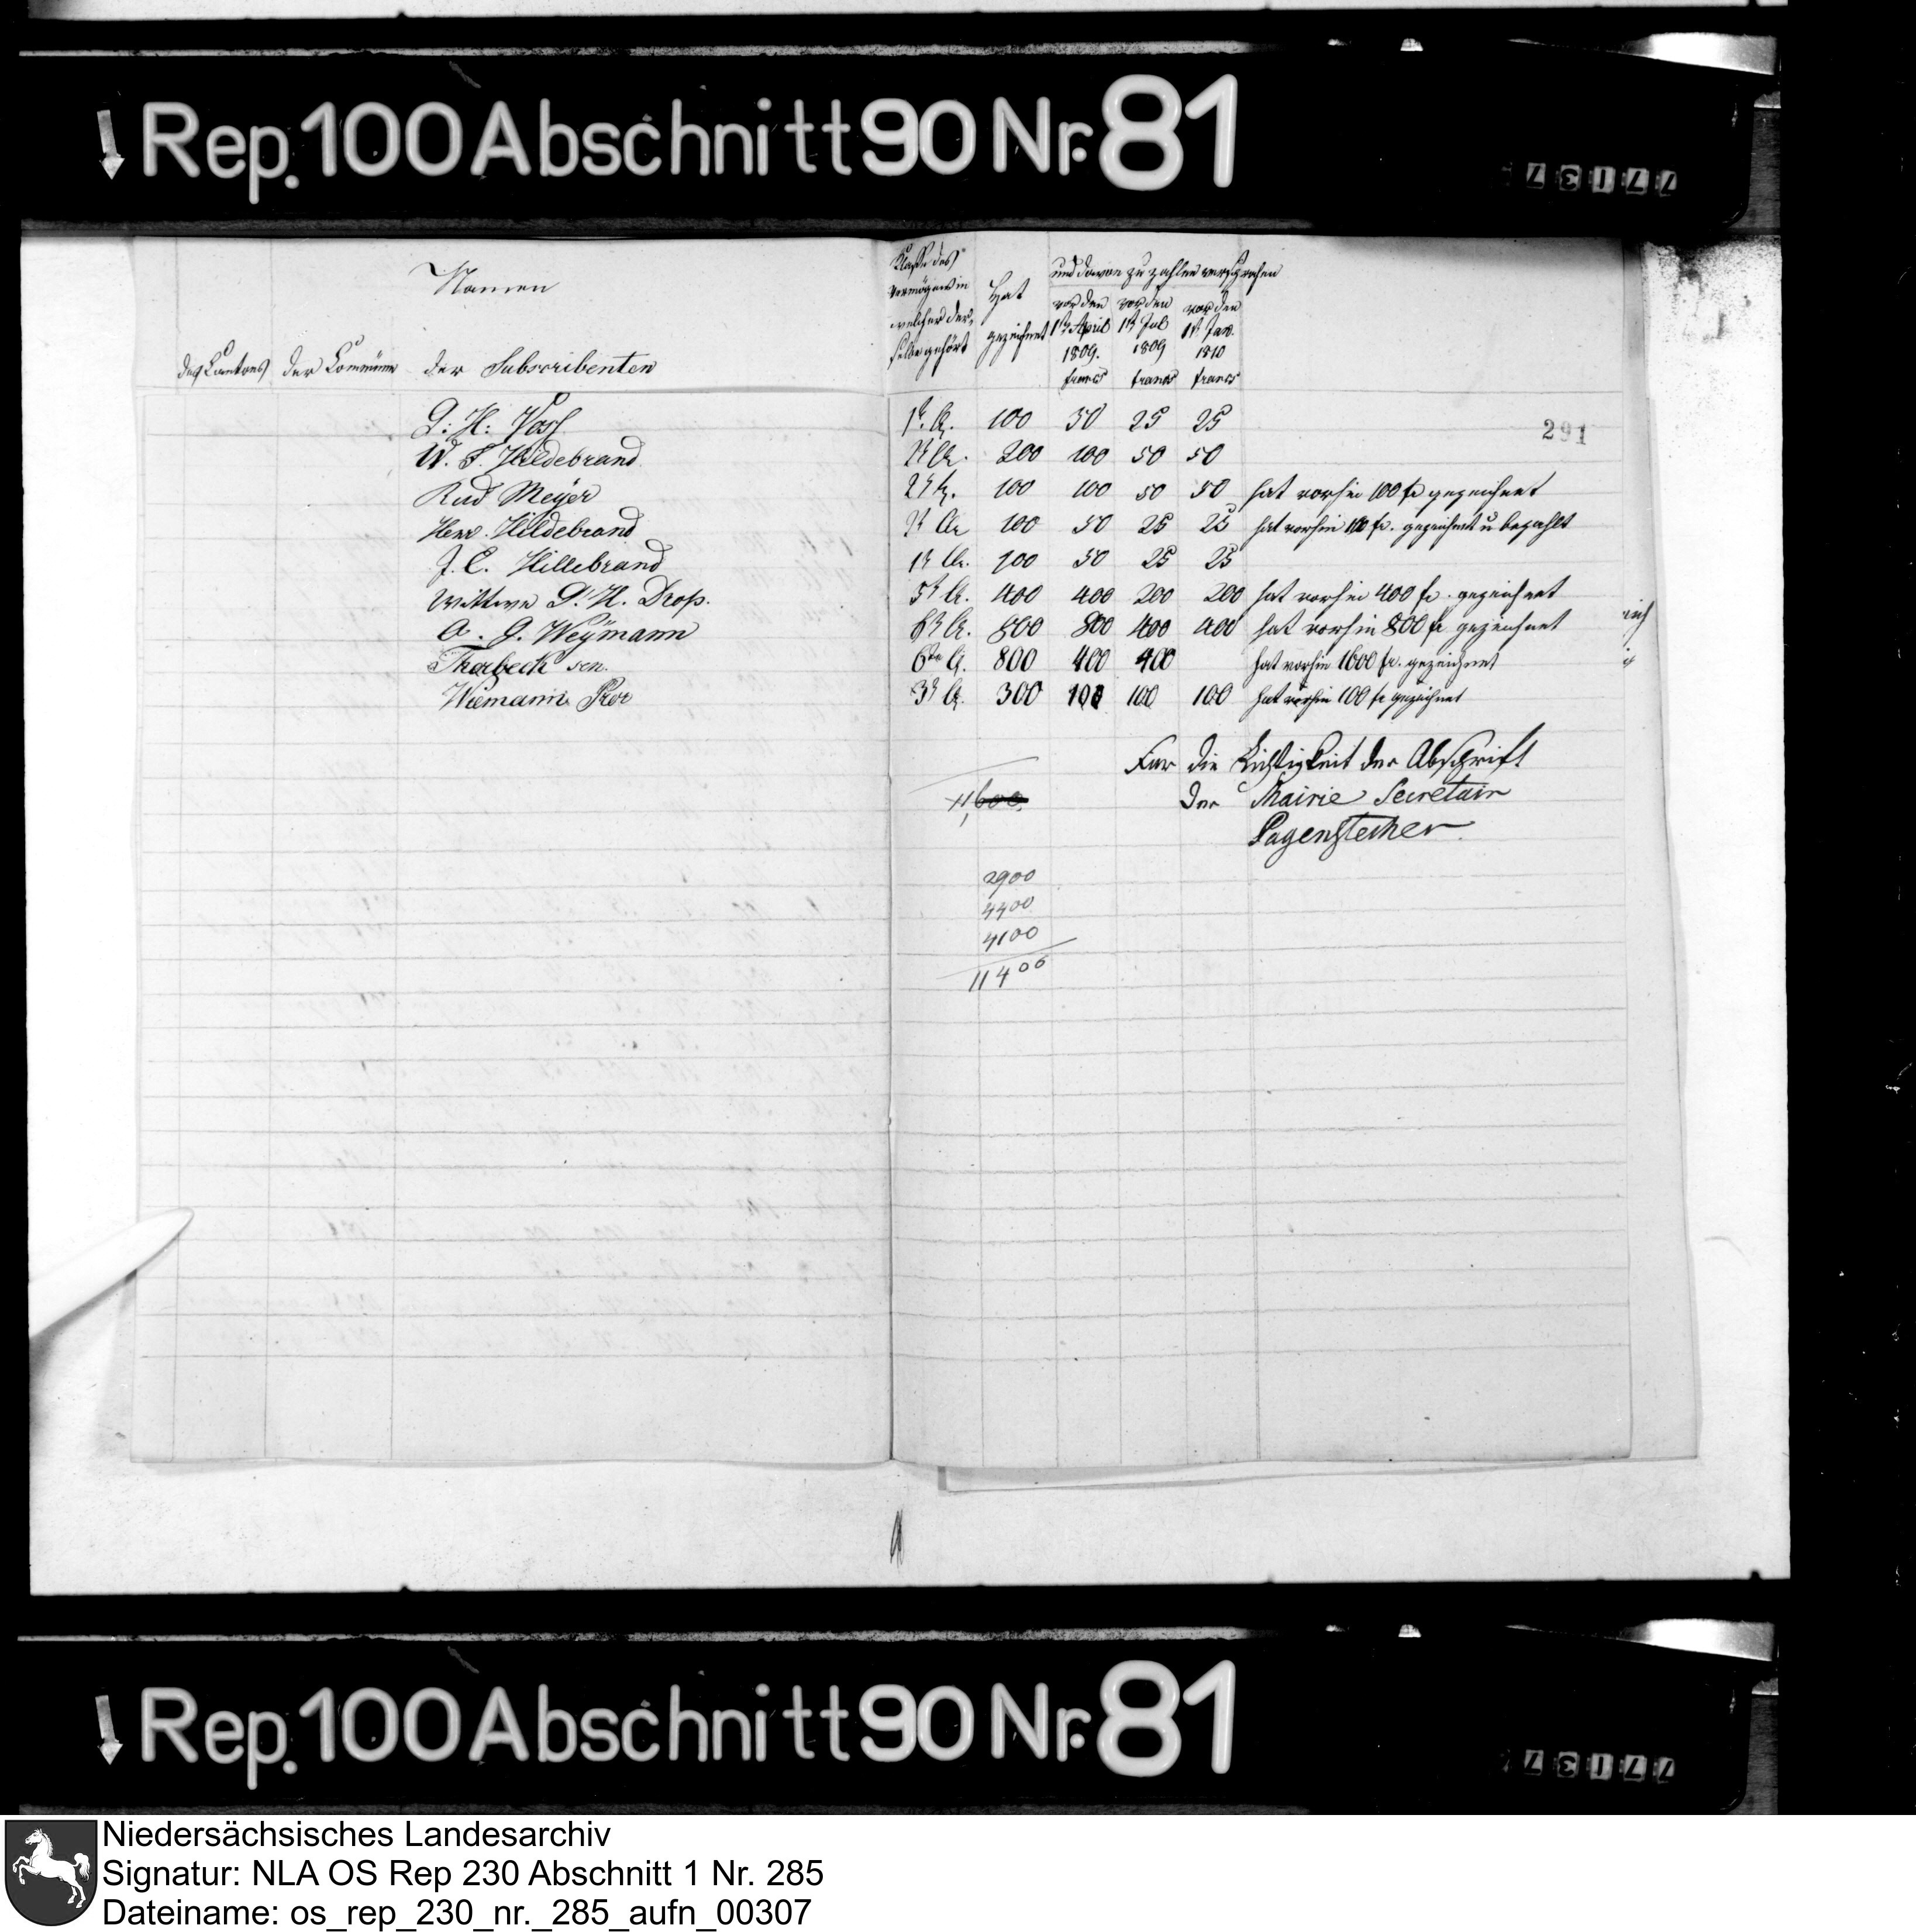 Rep. 100 Abschnitt 90 Nr. 81
77137
Namen
des Cantons der Commüne der Subscribenten
Klasse des Vermögens in welcher derselbe gehört
Hat gezeichnet
und davon zu zahlen versprochen
vor den 1t April 1809. francs
vor den 1t Jul 1809 francs
vor den 1t Jan. 1810 francs
291
G: H: Voss 1t Cl. 100 50 25 25
W. F. Hildebrand 2t Cl. 200 100 50 50
Rud Meÿer 2t Cl. 100 100 50 50 hat vorhin 100 fr gezeichnet
Henr. Hildebrand 2t Cl 100 50 25 25 hat vorhin 100 fr. gezeichnet u bezahlt
J. C. Hillebrand 1t Cl. 100 50 25 25
Wittwe G. H. Drop. 5t Cl. 400 400 200 200 hat vorhin 400 fr. gezeichnet
A. G. Weÿmann 6t Cl. 800 800 400 400 hat vorhin 800 fr gezeichnet
Thorbeck sen. 6te Cl. 800 400 400 hat vorhin 1600 fr. gezeichnet
Wiemann Pror 3t Cl. 300 100 100 100 hat vorhin 100 fr gezeichnet
Fur die Richtigkeit der Abschrift
11,600. der Mairie Secretair
Pagenstecher
2900
4400
4100
11400
Rep. 100 Abschnitt 90 Nr. 81
77137
Niedersächsisches Landesarchiv
Signatur: NLA OS Rep 230 Abschnitt 1 Nr. 285
Dateiname: os_rep_230_nr._285_aufn_00307